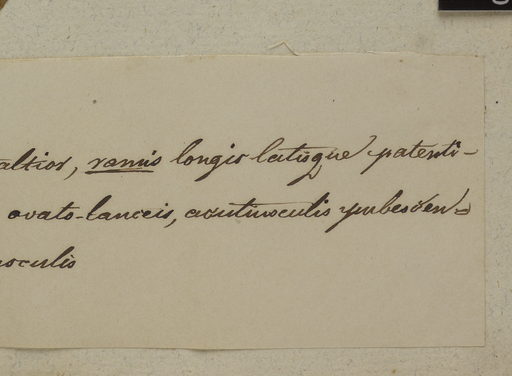 altior, ramis longis latisque patenti-
ovato-lanceis, acutiusculis pubescen=
usculis